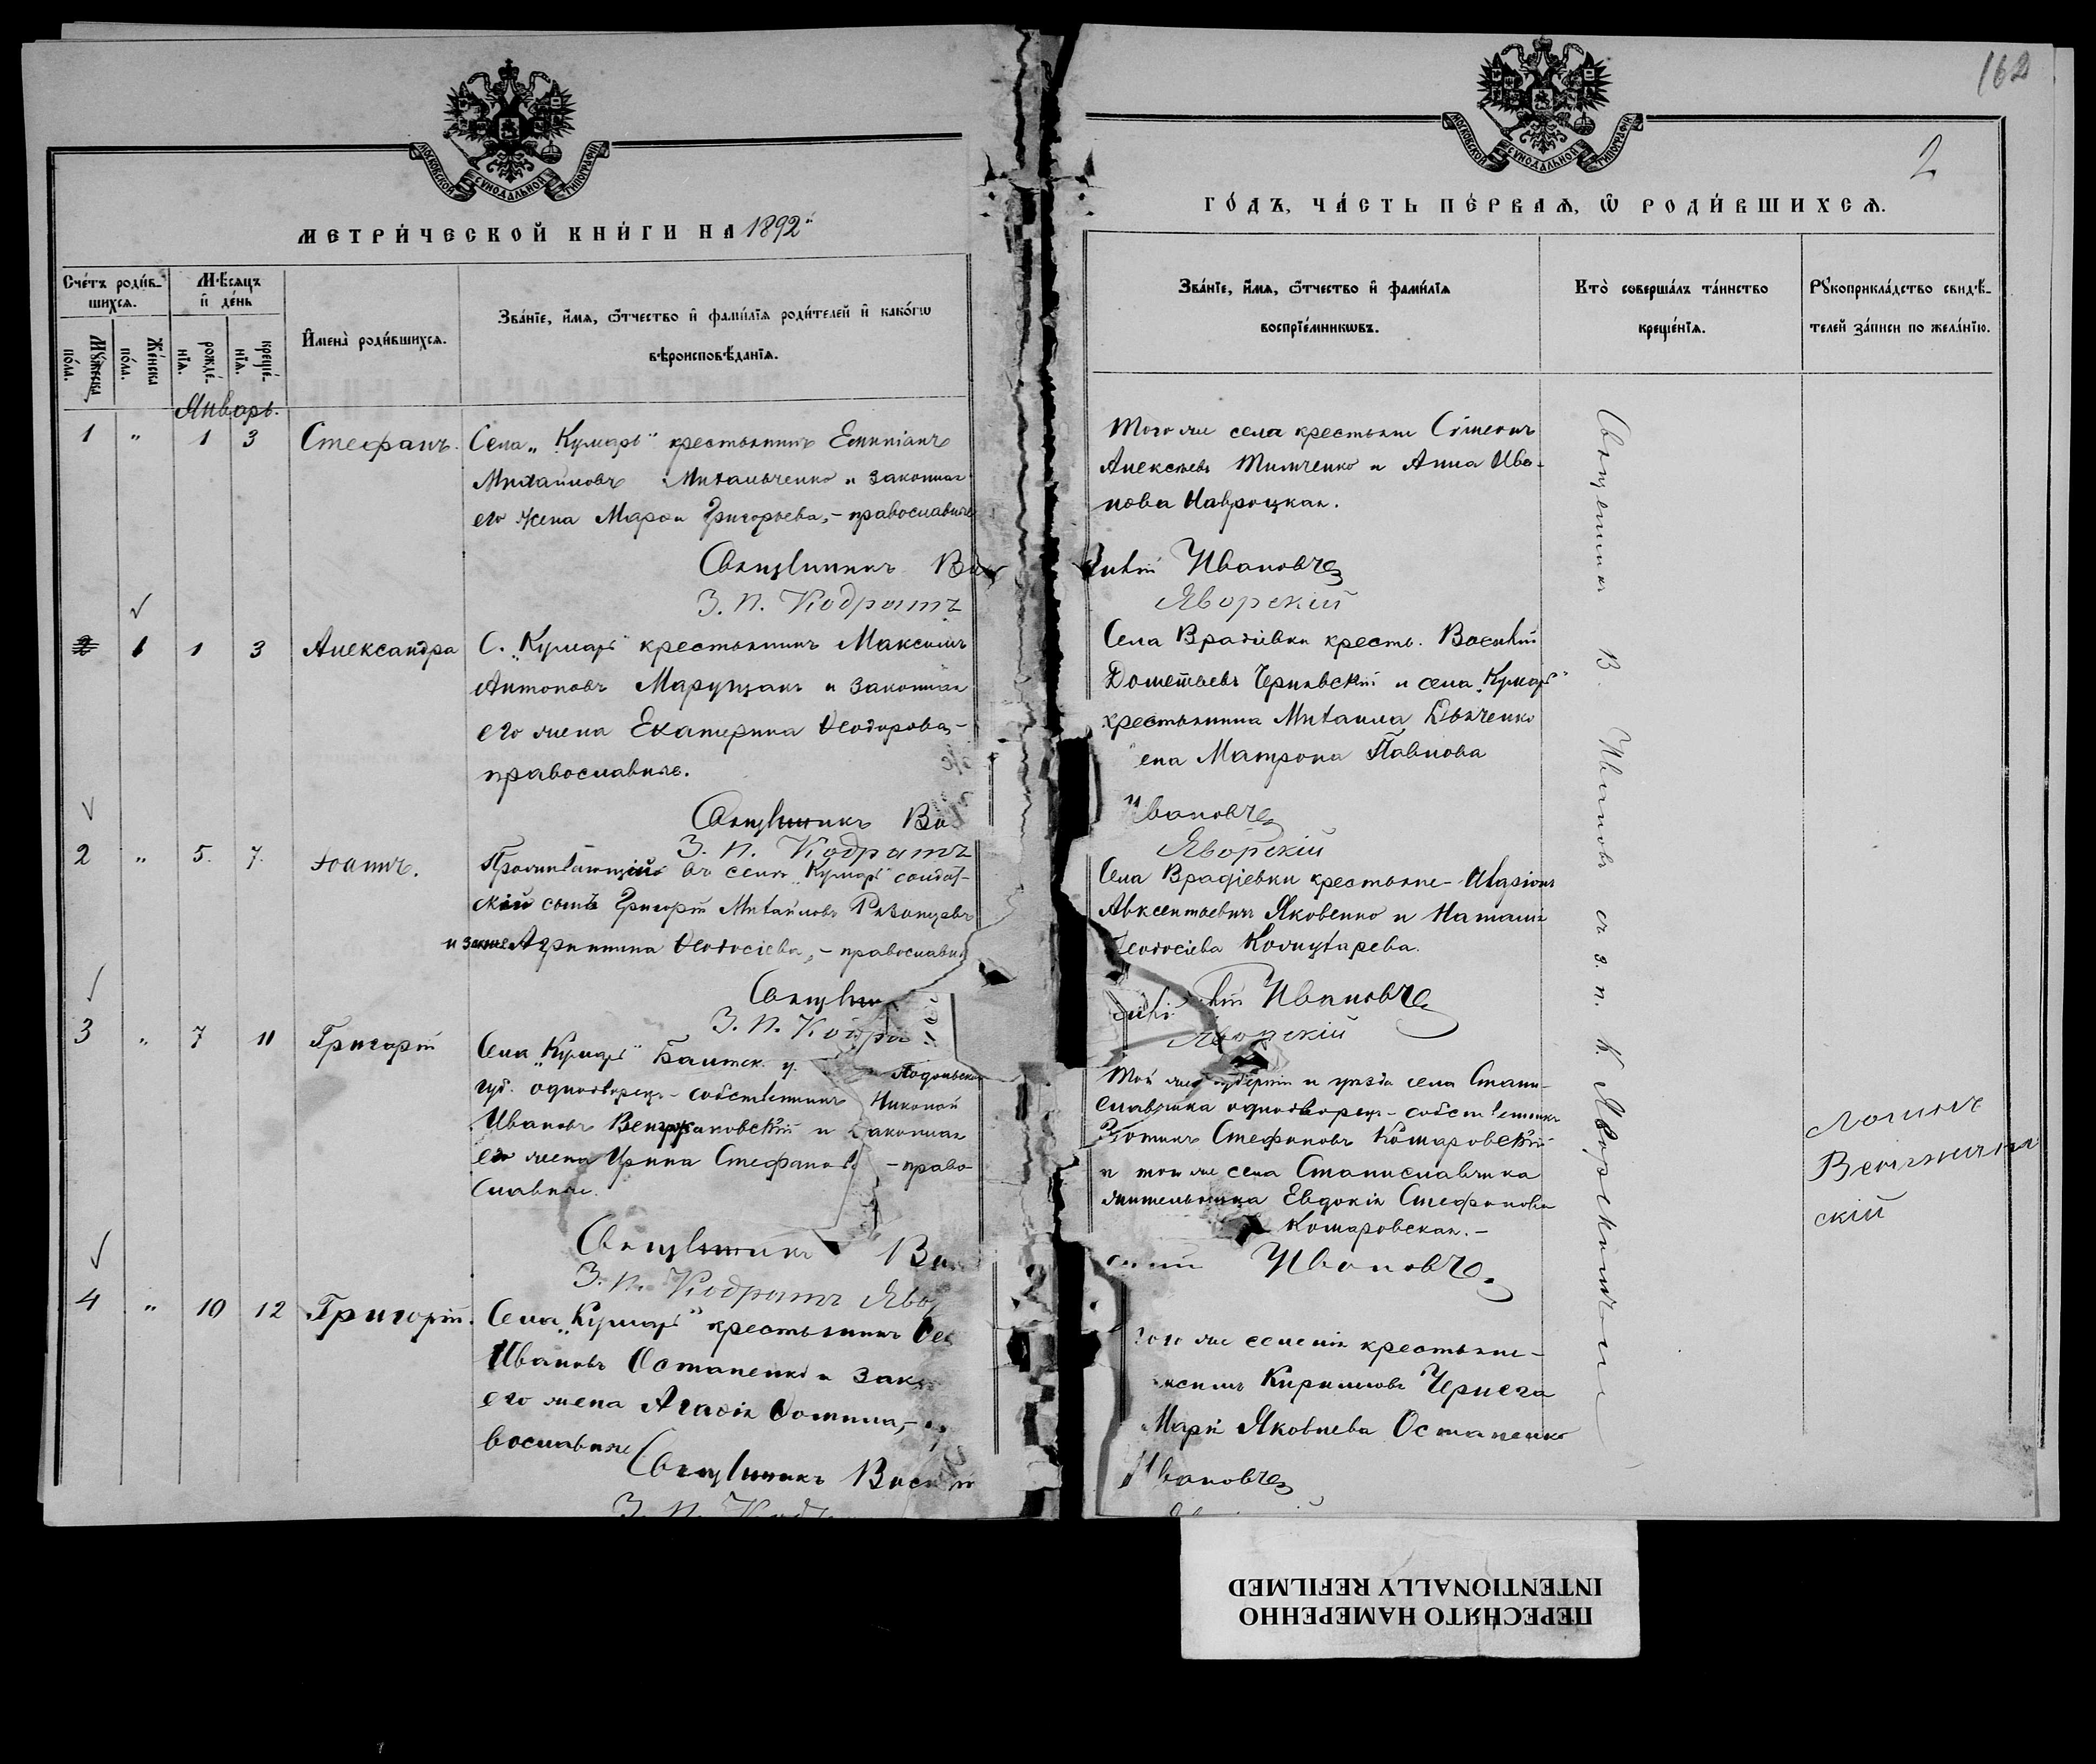 МОСКОВСКОЙ СѴНОДАЛЬНОЙ ТИПОГРАФІИ
МЕТРИ́ЧЕСКОЙ КНИ́ГИ НА 1892й
Сче́тъ роди́в-
шихся.
Мѣ́сяцъ
и҆ де́нь
Мꙋ́жеска
по́ла.
Же́нска
по́ла.
рожде́-
нїя.
креще́-
нїя.
И҆мена̀ роди́вшихся.
Зва́нїе, и҆́мя, ѻ҆́тчество и҆ фами́лїя роди́телей и҆ како́гѡ
вѣроисповѣ́данїя.
Январь.
1 " 1 3 Стефанъ.
Села „Кумары" крестьянинъ Емиліанъ
Михайловъ Михальченко и законная
его жена Марѳа Григорьева,- православные
Священникъ
З. П. Кодратъ
2 1 1 3 Александра
С. „Кумары" крестьянинъ Максимъ
Антоновъ Марущакъ и законная
его жена Екатерина Ѳеодорова,-
православные.
Священникъ
З. П. Кодратъ
2 " 5. 7. Іоаннъ.
Проживающій въ селѣ „Кумары" солдат-
скій сынъ Григорій Михайловъ
и Агрипина Ѳеодосіева,- православн
З. П. Кодра
3 " 7 11 Григорій
Села „Кумары" Балтск. у. Подольской
губ. однодворецъ - собственникъ Николай
Ивановъ и законная
его жена Ирина Стефанова - право-
славные.
Священникъ
З. П. Кодратъ Яво
4 " 10 12 Григорій.
Села „Кумары" крестьянинъ
Ивановъ Остапенко и зак
его жена Агаѳія Ѳомина,-
вославные
Священникъ Васил
З. П.
162
2
МОСКОВСКОЙ СѴНОДАЛЬНОЙ ТИПОГРАФІИ
ГО́ДЪ, ЧА́СТЬ ПЕ́РВАЯ, Ѽ РОДИ́ВШИХСЯ.
Зва́нїе, и҆́мя, ѻ҆́тчество и҆ фами́лїя
воспрїе́мникѡвъ.
Кто̀ соверша́лъ та́инство
креще́нїя.
Рꙋкоприкла́дство свидѣ́-
телей за́писи по жела́нїю.
Того же села крестьяне Сѵмеонъ
Алексѣевъ Тимченко и Анна Ива-
нова Навроцкая.
Ивановъ
Яворскій
Села Врадіевки кресть. Василій
Дометіевъ Чернявскій и села „Кумары"
крестьянина Михаила Дьяченко
ена Матрона Павлова
Ивановъ
Яворскій
Села Врадіевки крестьяне -
Авксентіевичъ Яковенко и Наталія
Ѳеодосіева
Ивановъ
Яворскій
Той же губерніи и уѣзда села Стани-
славчика однодворецъ - собственникъ
Стефановъ Комаровскій
и того же села Станиславчика
жительница Евдокія Стефанова
Комаровская.-
Ивановъ
того же селенія крестьяне -
Кирилловъ Чернега
Марія Яковлева Остапенко
Ивановъ
Священникъ В. Ивановъ съ з. п. К. Яворскимъ
Логинъ
скій
ПЕРЕСНЯТО НАМЕРЕННО
INTENTIONALLY REFILMED